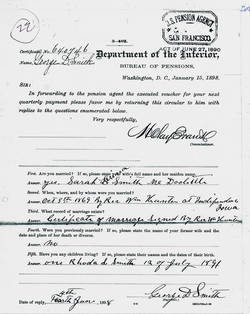 U.S. PENSION AGENT
SAN FRANCISCO.
3-402.
ACT OF JUNE 27, 1890
Certificate No. 640746
Department of the Interior,
Name, George D Smith
BUREAU OF PENSIONS,
Washington, D. C., January 15, 1898.
SIR:
In forwarding to the pension agent the executed voucher for your next
quarterly payment please favor me by returning this circular to him with replies
to the questions enumerated below.
Very respectfully,
Commissioner.
First. Are you married? If so, please state your wife's full name and her maiden name.
Answer. yes. Sarah Smith Mc Doolittle
Second. When, where, and by whom were you married?
Answer. Oct 8th 1869 by Rev Wm Hunter at Independence
Iowa
Third. What record of marriage exists?
Answer. Certificate of Marriage Signed By Rev Wm Hunter
Fourth. Were you previously married? If so, please state the name of your former wife and the
date and place of her death or divorce.
Answer. No
Fifth. Have you any children living? If so, please state their names and the dates of their birth.
Answer. one Rhoda D Smith 12 of July 1891
Date of reply, June, 1898
George D Smith